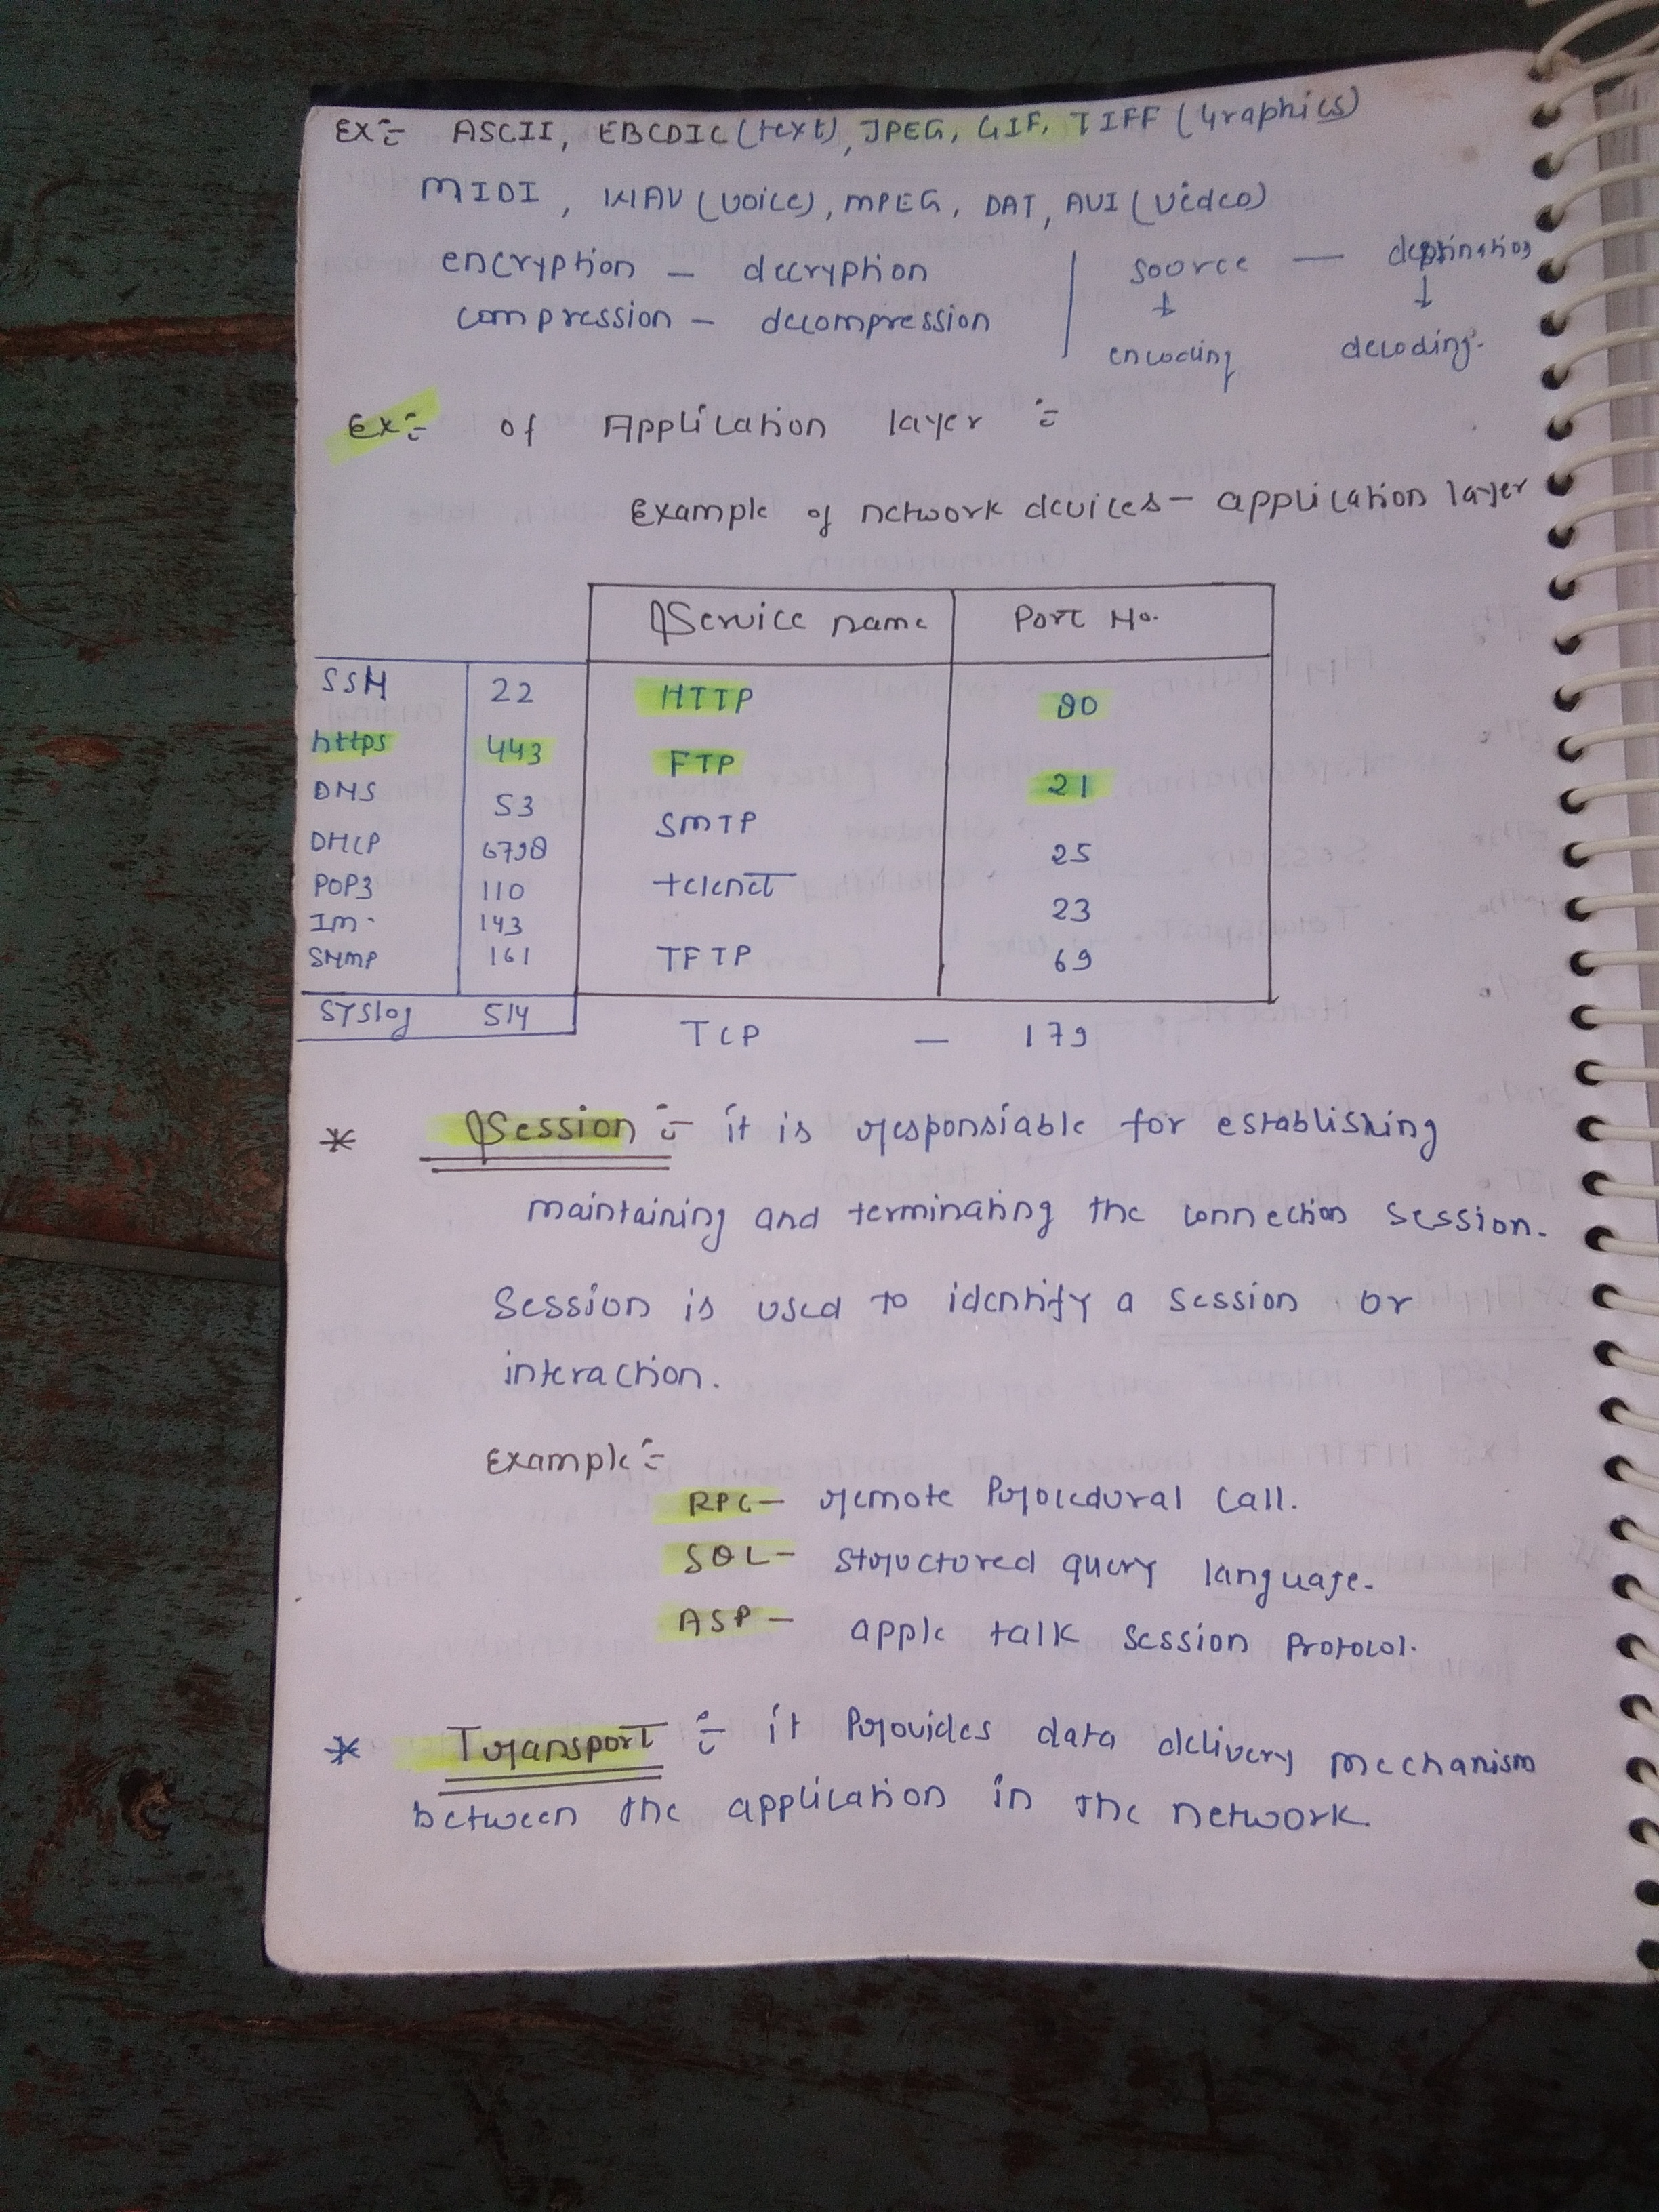 Ex:- ASCII, EBCDIC (text), JPEG, GIF, TIFF (Graphics)
MIDI, WAV (voice), MPEG, DAT, AVI (video)
encryption - decryption | source — destination
compression - decompression ↓ ↓
encoding decoding.
Ex:- of Application layer :-
Example of network devices - application layer
Service name Port No.
SSH 22 HTTP 80
https 443 FTP 21
DNS 53 SMTP 25
DHCP 6768 telenet 23
POP3 110
Im. 143
SNMP 161 TFTP 69
SYSlog 514 TCP — 179
* Session :- it is responsiable for establishing
maintaining and terminating the connection session.
Session is used to identify a session or
interaction.
Example :-
RPC - remote Procedural call.
SQL - structured query language.
ASP - apple talk session Protocol.
* Transport :- it Provides data delivery mechanism
between the application in the network.